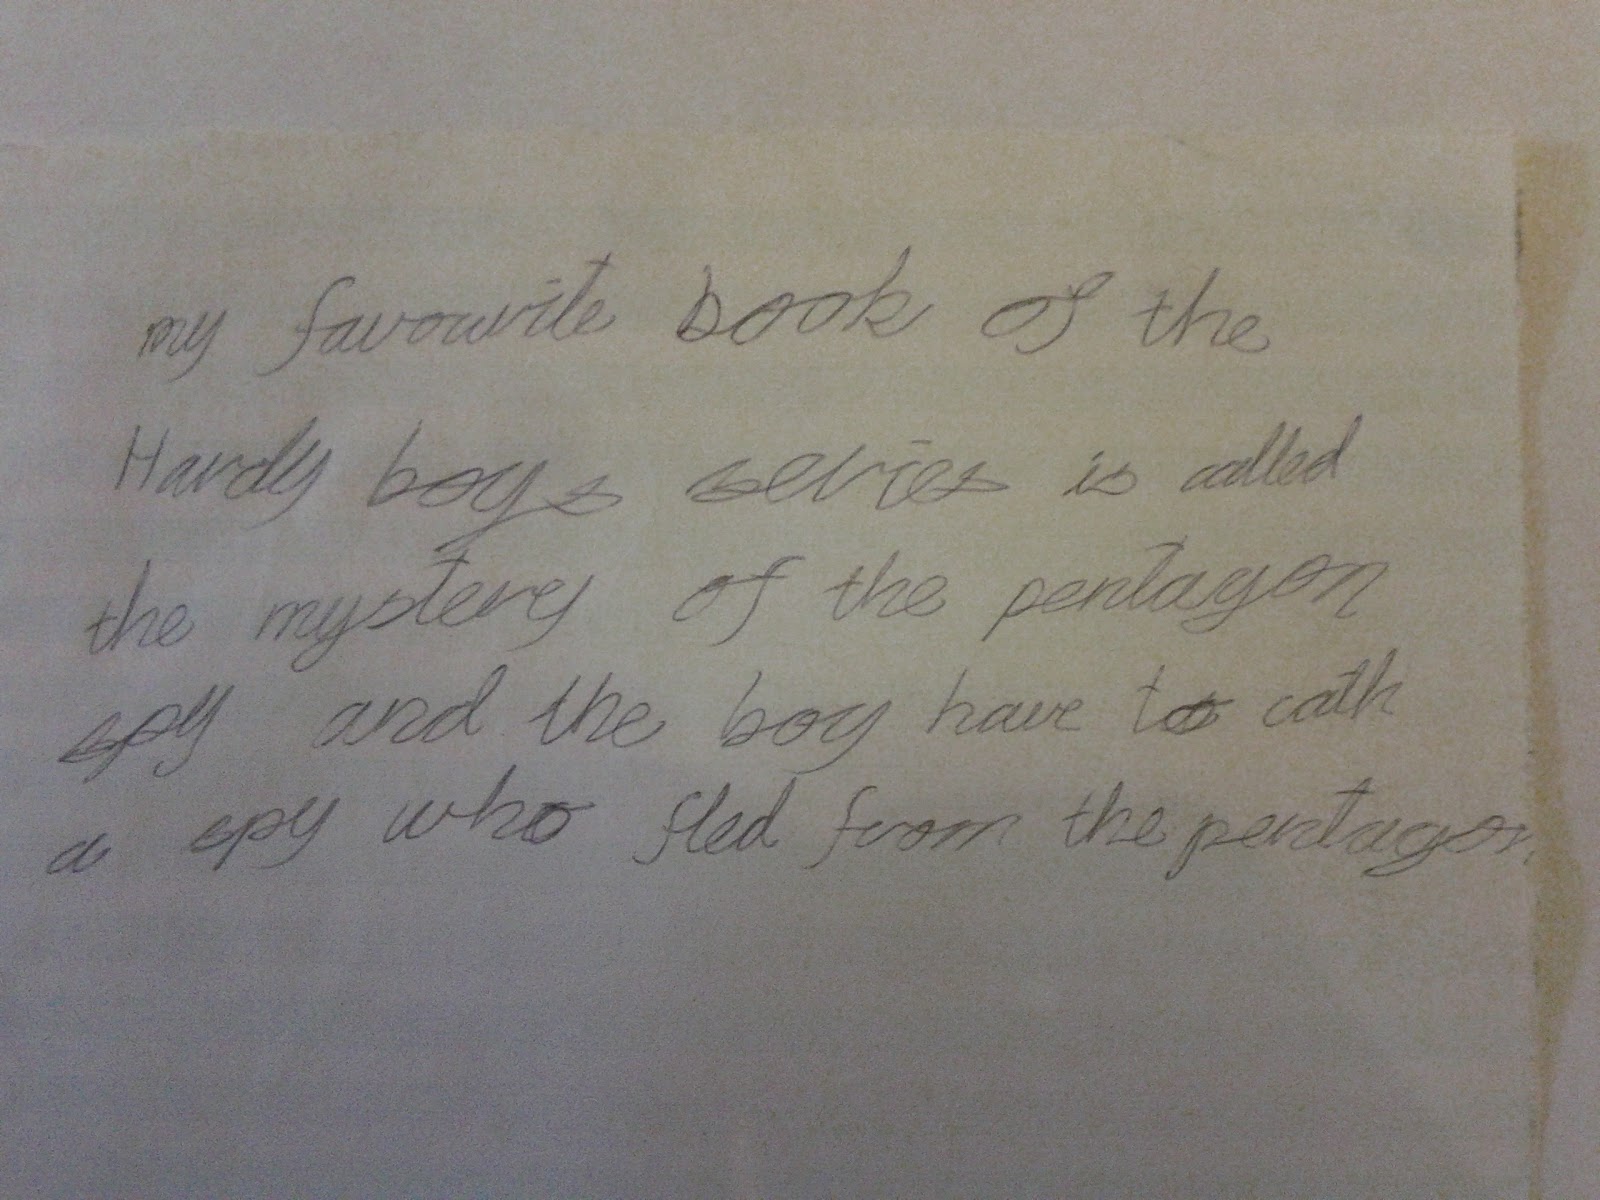 my favourite book of the
Hardy boys series is called
the mystery of the pentagon
spy and the boy have to cath
a spy who fled from the pentagon.